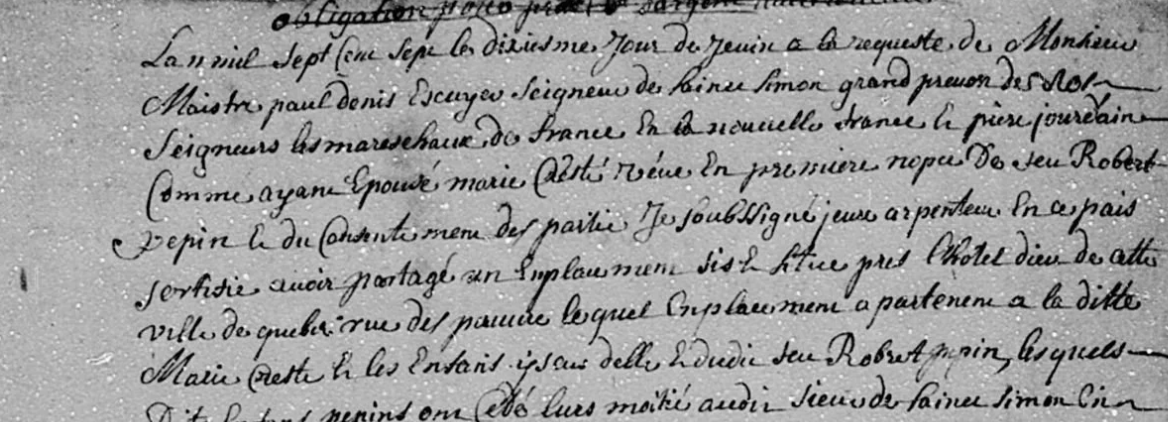 obligation
Lan mil sept Cent sept le dixiesme Jour de Jeuin a la requeste de Monsieur
Maistre paul denis Escuyer Seigneur de Sainct Simon grand prevon des Nos
Seigneurs les mareschaux de france En la nouvelle france Et piere jourdain
Comme ayant Epousé marie Creste véve En premiere nopce De feu Robert
pepin Et du Consentement des partie Je soubssigné jeure arpenteur En ce pais
sertifie avoir partagé un Enplacement sis Et situe pres Lhotel dieu de cette
ville de quebec rue des pauvre lequel Enplacement apartenent a la ditte
Marie Creste Et les Enfans issus delle Et dudit feu Robret pepin, lesquels
Dit Enfans pepins ont Cédé leurs moitié audit Sieur de Sainct Simon En